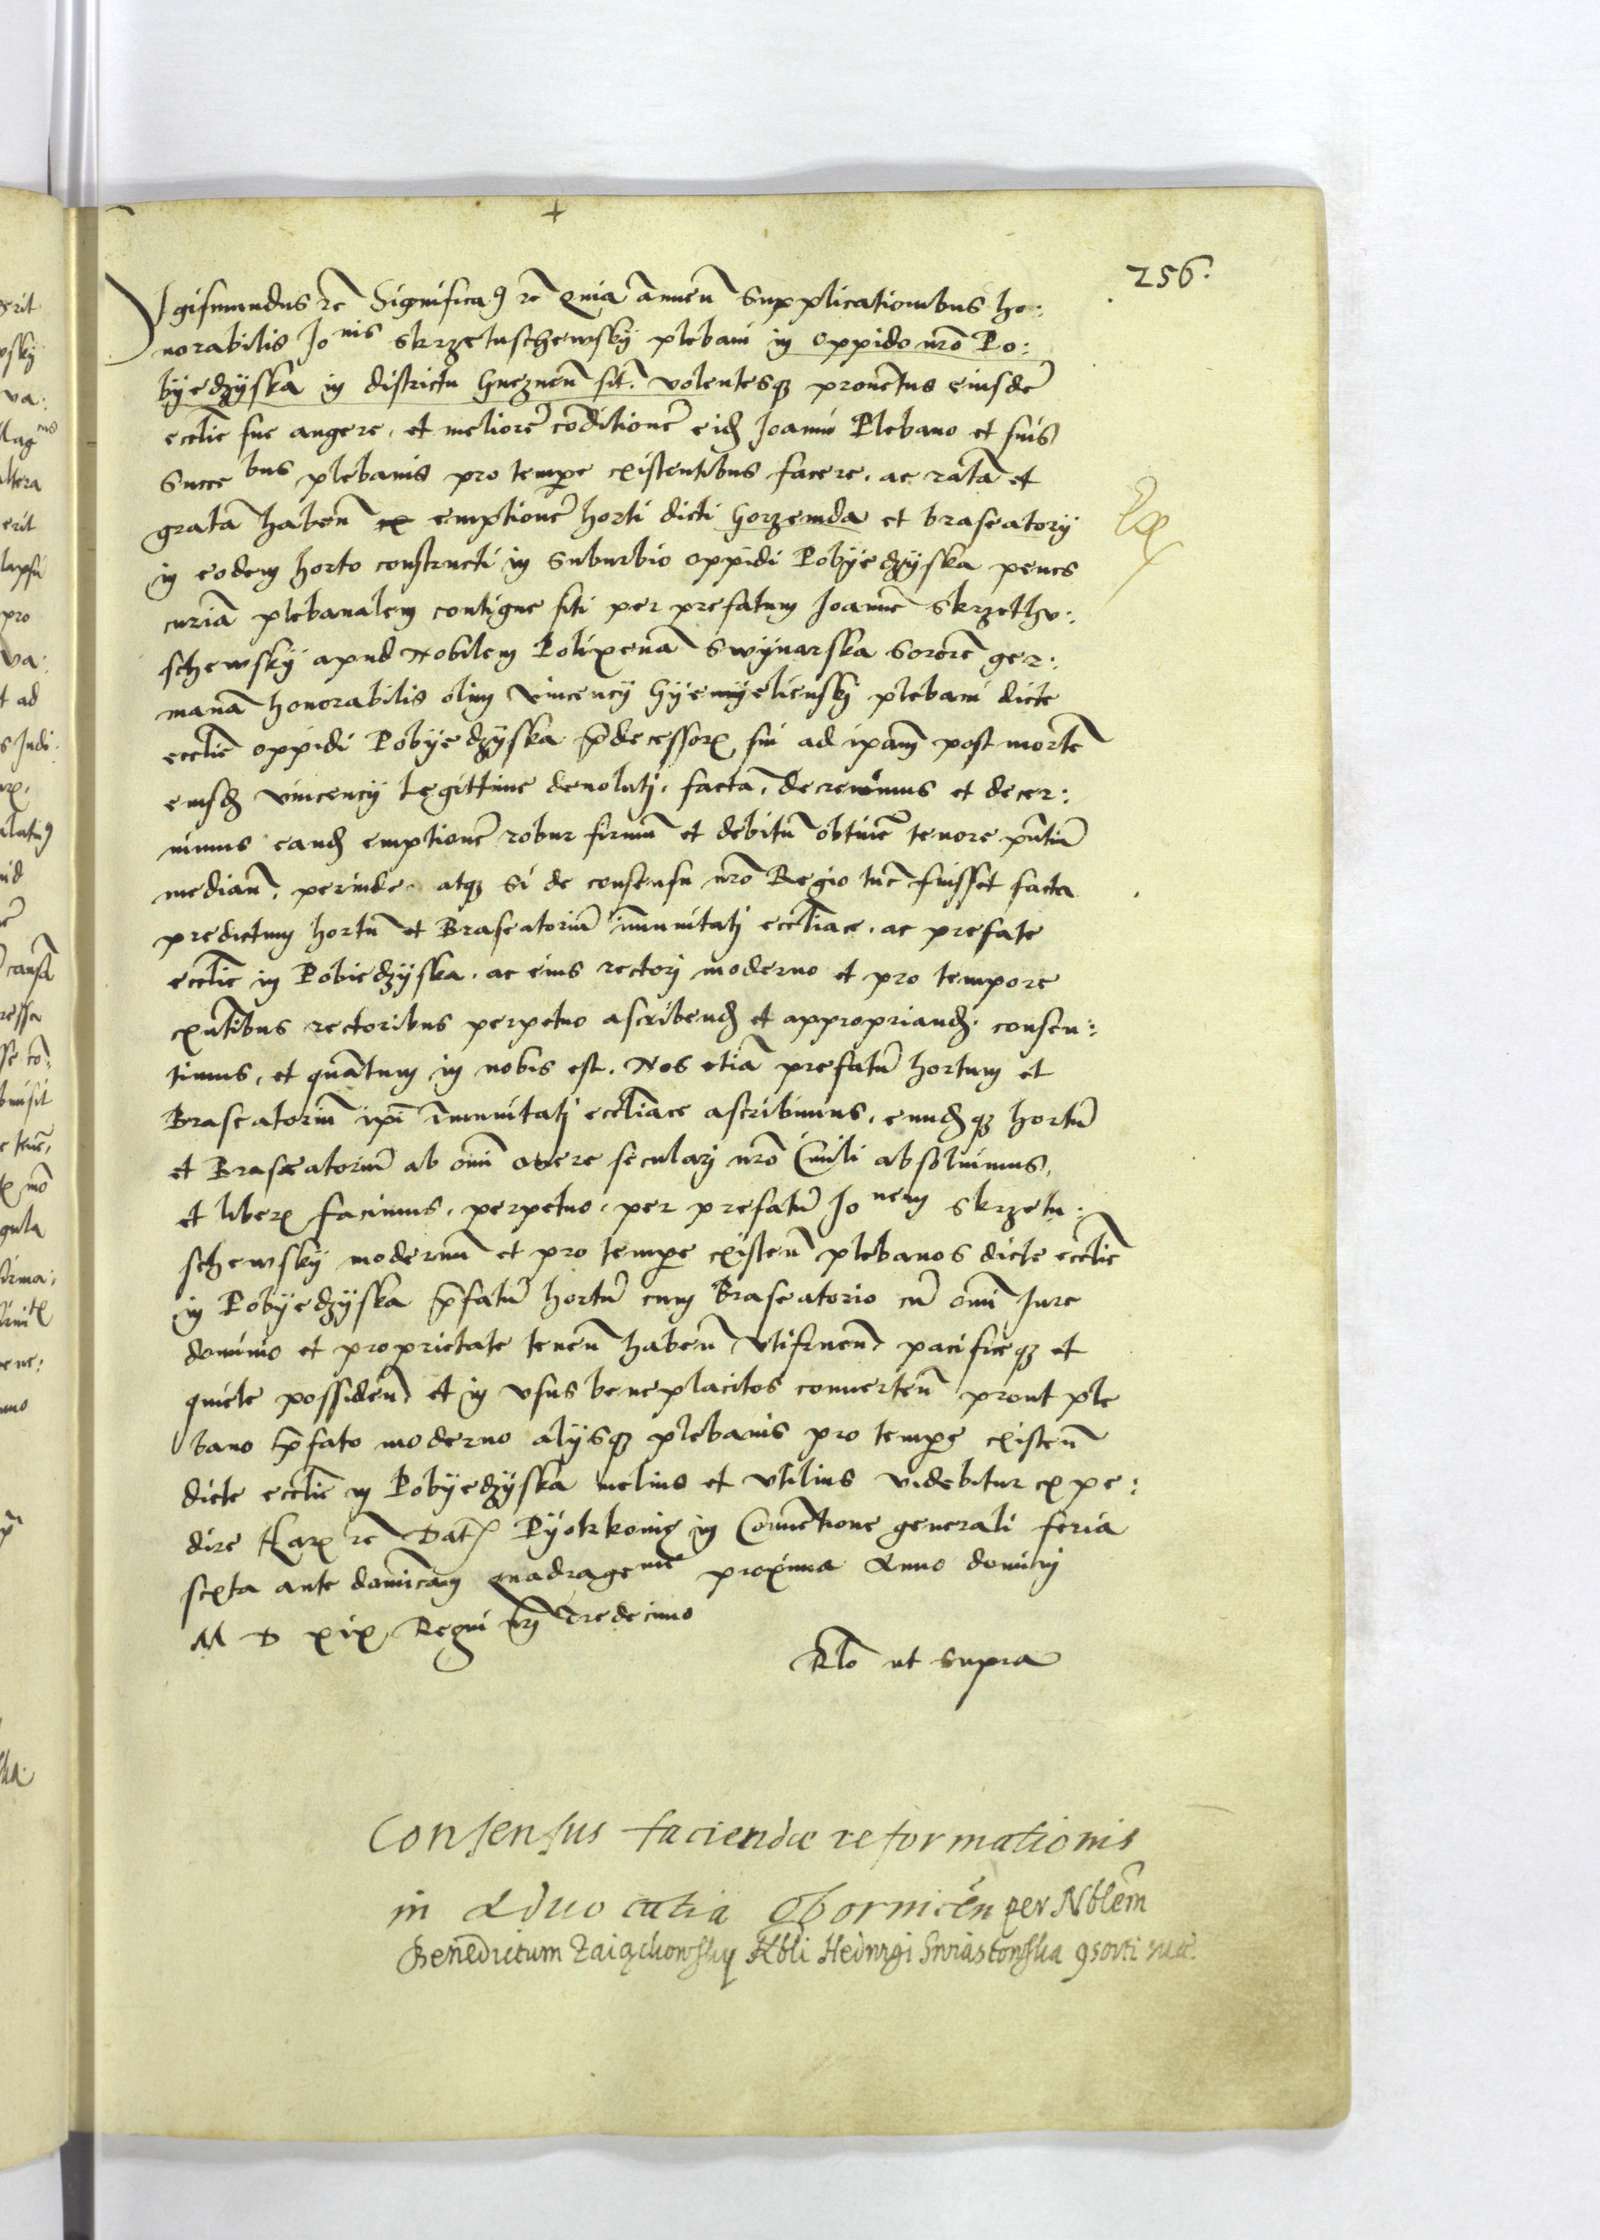 +
256.
Sigismundus rc̃ Significaꝯ rc̃ Quia ānueñ Supplicationibus ho:
norabilis Joⁿⁱˢ Skrzetuschewsky plebani in oppido nr̃o Po:
byedzyska in districtu Gneznen̄ sit. volentesqꝫ prouentus eiusdē
eccl̃ie sue augere, et meliorē cōditionē eidꝫ Joanni Plebano et suis
Succeᵇᵘˢ plebanis pro temp̱e existentibus facere, ac ratā et
gratā habeñ emptionē horti dicti Gorzemda et braseatorij
in eodem horto constructi in suburbio oppidi Pobyedzyska penes
curiā plebanalem contigue siti per prefatum Joannē Skrzethu:
schewsky apud Nobilem Polixenā Swynarska Sororē ger:
manā honorabilis olim Vincencij Gyemyelienskj plebani dicte
eccl̃ie oppidi Pobyedzyska p̄decessorꝭ sui ad ip̄am post mortē
eiusdꝫ Vincencij Legittime deuolutj, facta, decreuimus et decer:
nimus eandꝫ emptionē robur firmū et debitū obtinerē tenore p̄ntiū
medianī, perinde atqꝫ si de consensu nr̃o Regio tūc fuisset facta
predictum hortū et Braseatoriū immunitatj eccl̃iace, ac prefate
eccl̃ie in Pobiedzyska, ac eius rectorj moderno et pro tempore
exn̄tibus rectoribus perpetuo ascribendꝫ et appropriandꝫ consen:
timus, et quātum in nobis est, Nos etiā prefatū hortum et
Braseatoriū ip̄i immunitatj eccl̃iace ascribimus, eundꝫqꝫ hortū
et Braseatoriū ab om̄i onere secularj nr̃o Ciuili absoluimus,
et liberꝭ facimus, perpetuo, per prefatū Joⁿᵉᵐ Skrzetu:
schewsky modernū et pro temp̱e existeñ plebanos dicte eccl̃ie
in Pobyedzyska p̄fatū hortū cum Braseatorio cū om̄i Jure
dominio et proprietate teneñ habeñ Vtifrueñ pacificeqꝫ et
quiete possideñ et in vsus beneplacitos conuerteñ prout ple
bano p̄fato moderno alijsqꝫ plebanis pro temp̱e existeñ
dicte eccl̃ie in Pobyedzyska melius et vtilius videbitur expe:
dire Harꝭ rc̃ Datꝭ Pyotrkouie in Conuētione generali feria
sexta ante dominicam quadrageⁿᵉ proxima Anno dominj
M D xix Regni nr̃j Tredecimo
Rlō ut supra
Consensus faciendæ reformationis
in Aduocatia Obornicēn per Nblēm
Benedictum Zaiączkowsky Nbli Hedvigi Swiastowska ꝯsorti suæ.